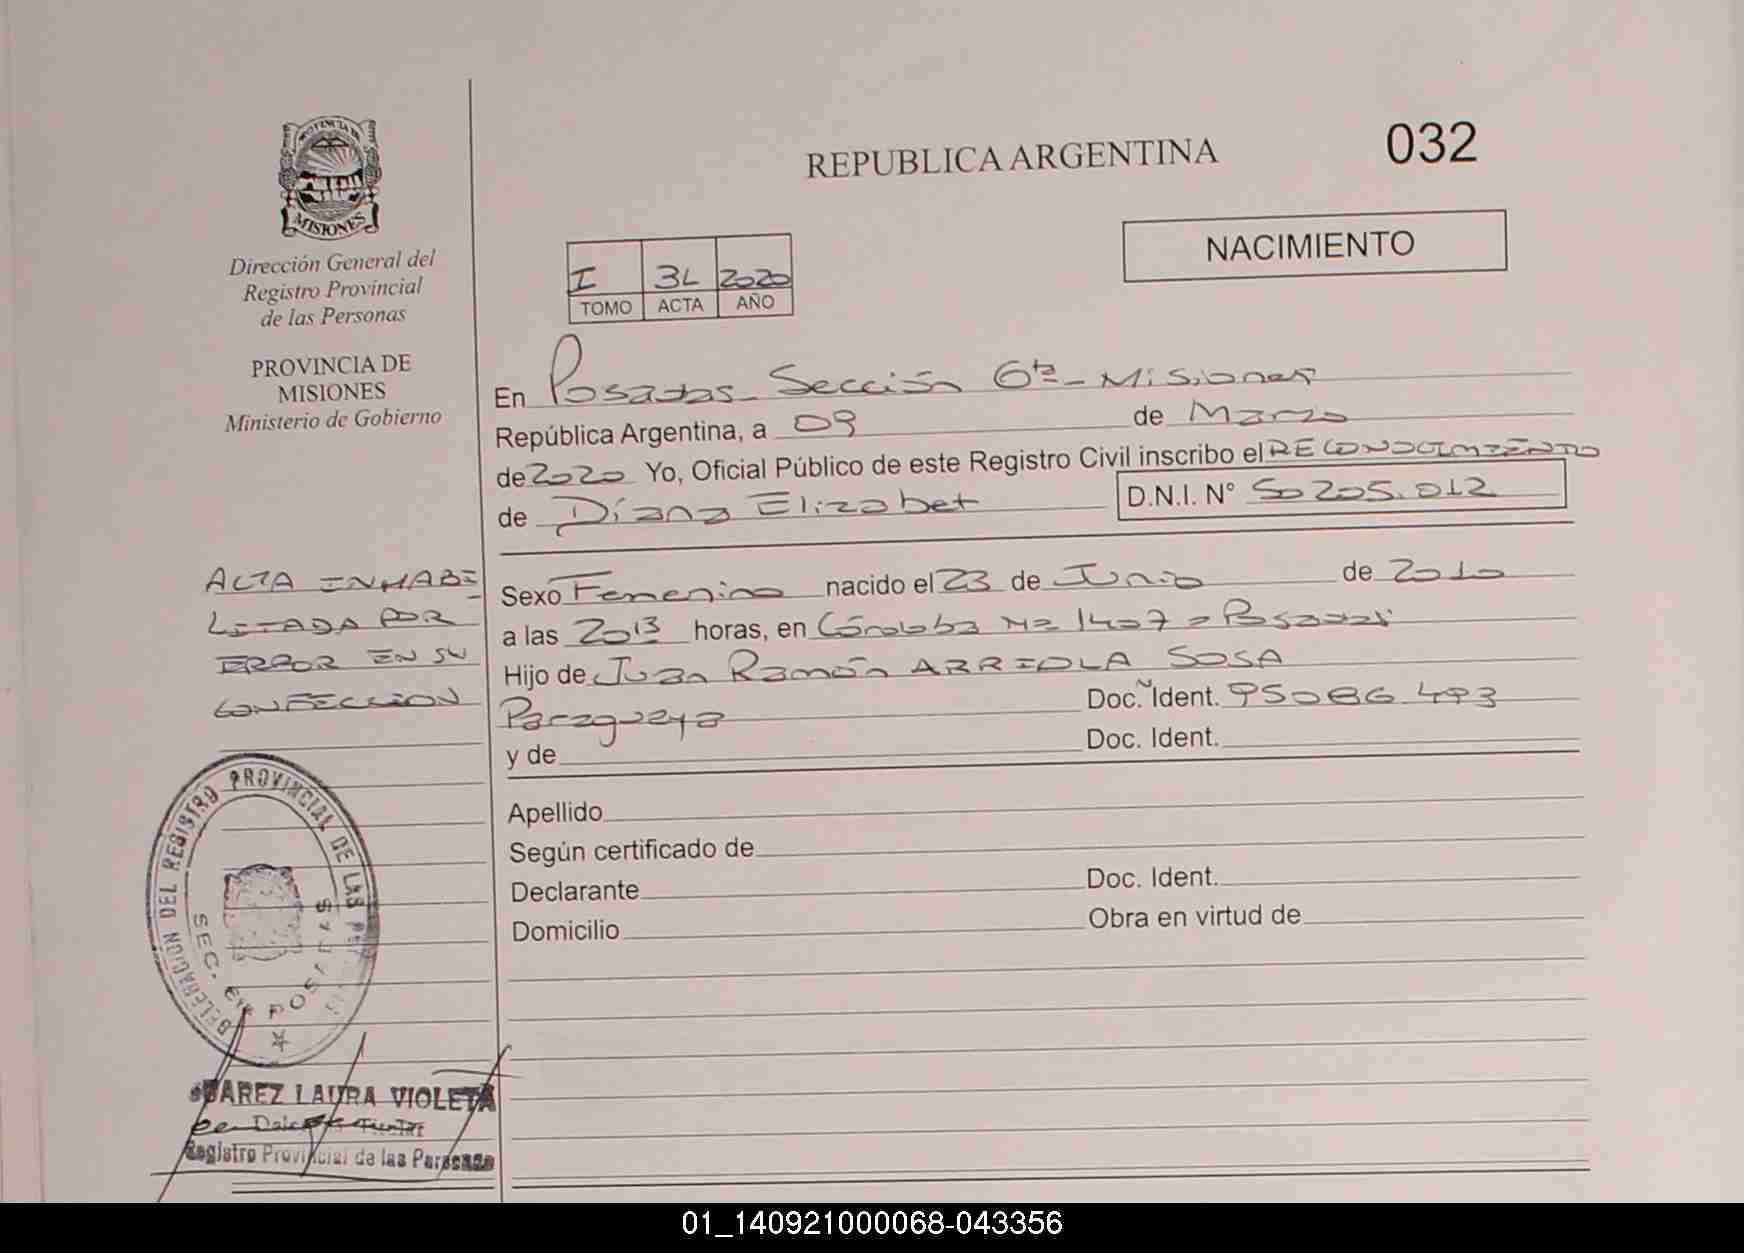 PROVINCIA DE
MISIONES
Dirección General del
Registro Provincial
de las Personas
PROVINCIA DE
MISIONES
Ministerio de Gobierno
REPUBLICA ARGENTINA
032
NACIMIENTO
I 3L 2020
TOMO ACTA AÑO
En Posadas Sección 6ta - Misiones
República Argentina, a 09 de Marzo
de 2020 Yo, Oficial Público de este Registro Civil inscribo el RECONOCIMIENTO
de Díana Elizabet D.N.I. N° 50205.012
Sexo Femenino nacido el 23 de Junio de 2010
a las 2013 horas, en Córdoba Nº 1407 - Posadas
Hijo de Juan Ramón ARRIOLA SOSA
Paraguaya Doc. Ident. 95086.493
y de Doc. Ident.
Apellido
Según certificado de
Declarante Doc. Ident.
Domicilio Obra en virtud de
ACTA INHABI
LITADA POR
ERROR EN SU
CONFECCIÓN
DELEGACION DEL REGISTRO PROVINCIAL DE LAS
SEC. POSADAS
SUAREZ LAURA VIOLETA
Registro Provincial de las Personas
01_140921000068-043356